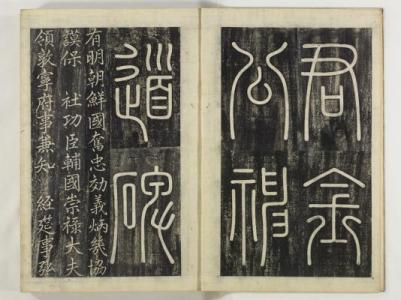 君金
公神
道碑
有明朝鮮國奮忠効義炳幾協
謨保 社功臣輔國崇祿大夫
領敦寧府事兼知 經筵事弘